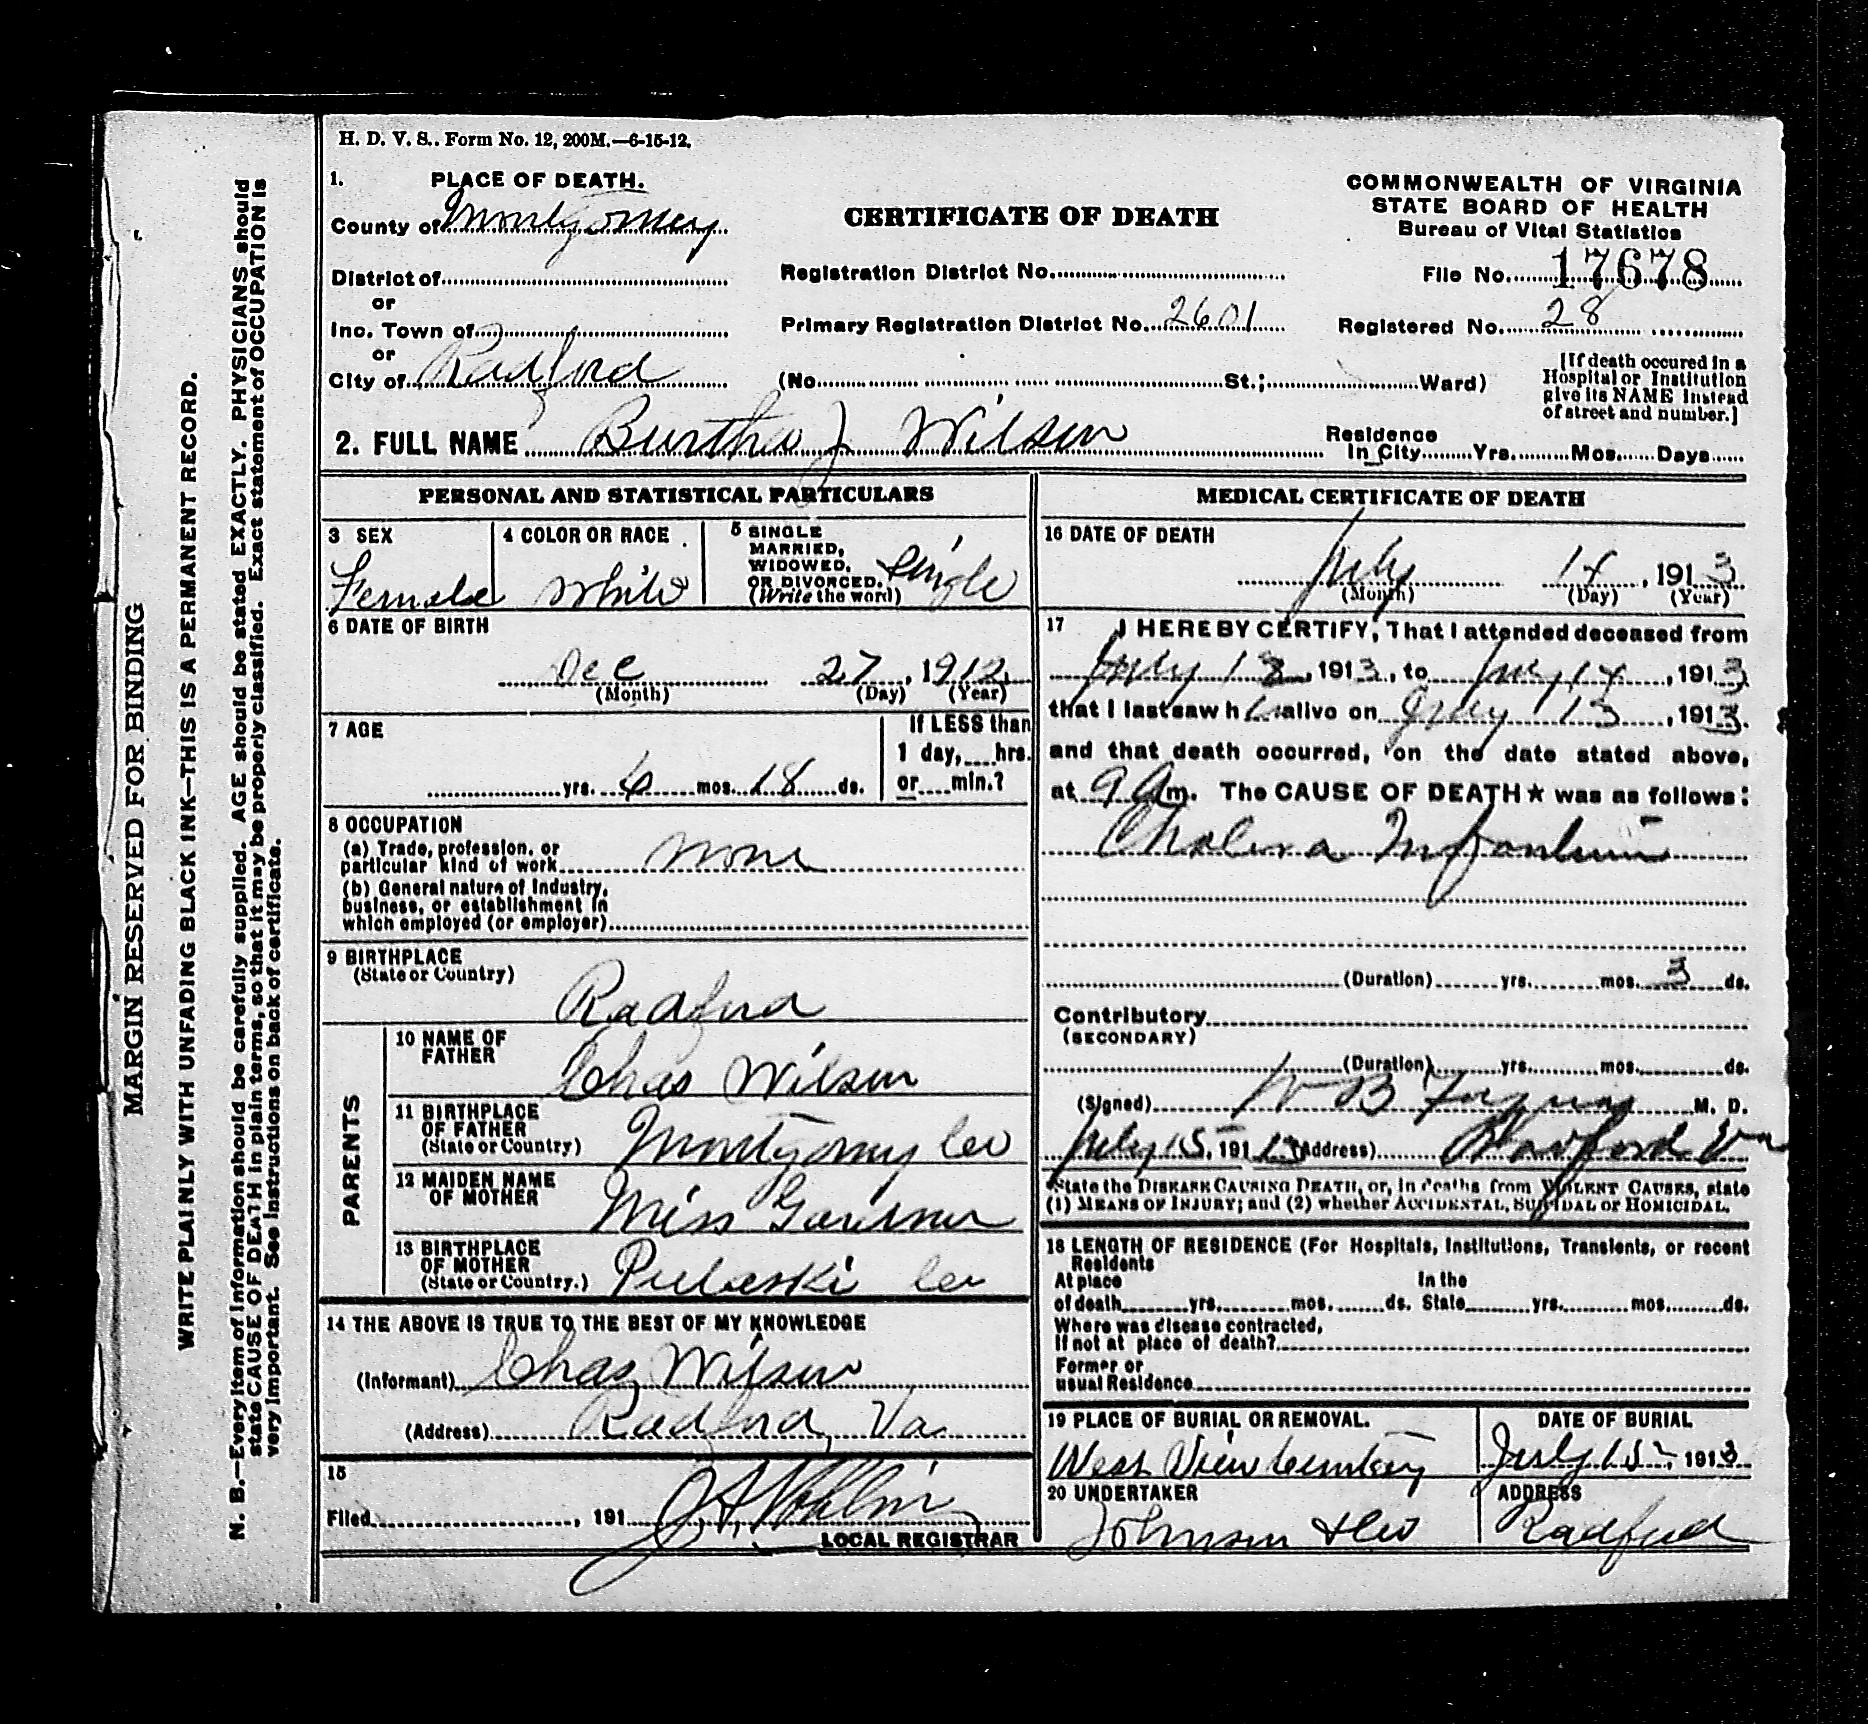 H. D. V. S.. Form No. 12, 200M.—6-15-12.
1. PLACE OF DEATH.
County of Montgomery
District of
or
Inc. Town of
or
City of Radford
CERTIFICATE OF DEATH
Registration District No.
Primary Registration District No. 2601
(No. St.; Ward)
COMMONWEALTH OF VIRGINIA
STATE BOARD OF HEALTH
Bureau of Vital Statistics
File No. 17678
Registered No. 28
[If death occured in a
Hospital or Institution
give its NAME instead
of street and number.]
2. FULL NAME Burtha J Wilson
Residence
In City Yrs. Mos. Days
PERSONAL AND STATISTICAL PARTICULARS
3 SEX
Female
4 COLOR OR RACE
White
5 SINGLE
MARRIED,
WIDOWED,
OR DIVORCED.
(Write the word)
Single
6 DATE OF BIRTH
Dec 27, 1912
(Month) (Day) (Year)
7 AGE
yrs. 6 mos. 18 ds.
If LESS than
1 day, hrs.
or min.?
8 OCCUPATION
(a) Trade, profession, or
particular kind of work none
(b) General nature of Industry,
business, or establishment in
which employed (or employer)
9 BIRTHPLACE
(State or Country)
Radford
PARENTS
10 NAME OF
FATHER
Chas Wilson
11 BIRTHPLACE
OF FATHER
(State or Country)
Montgomery Co
12 MAIDEN NAME
OF MOTHER
Miss
13 BIRTHPLACE
OF MOTHER
(State or Country.)
Pulaski Co
14 THE ABOVE IS TRUE TO THE BEST OF MY KNOWLEDGE
(Informant) Chas Wilson
(Address) Radford, Va
15
Filed , 191
LOCAL REGISTRAR
MEDICAL CERTIFICATE OF DEATH
16 DATE OF DEATH
July 14, 1913
(Month) (Day) (Year)
17 I HEREBY CERTIFY, That I attended deceased from
July 13, 1913, to July 14, 1913
that I last saw h alive on July 13, 1913.
and that death occurred, on the date stated above,
at 9 A m. The CAUSE OF DEATH★ was as follows:
Cholera Infantum
(Duration) yrs. mos. 3 ds.
Contributory
(SECONDARY)
(Duration) yrs. mos. ds.
(Signed) W B M. D.
July 15, 1913 (Address) Radford Va
State the DISEASE CAUSING DEATH, or, in deaths from VIOLENT CAUSES, state
(1) MEANS OF INJURY; and (2) whether ACCIDENTAL, SUICIDAL or HOMICIDAL.
18 LENGTH OF RESIDENCE (For Hospitals, Institutions, Transients, or recent
Residents
At place In the
of death yrs. mos. ds. State yrs. mos. ds.
Where was disease contracted,
If not at place of death?
Former or
usual Residence
19 PLACE OF BURIAL OR REMOVAL.
West View Cemetery
DATE OF BURIAL
July 15, 1913
20 UNDERTAKER
Johnson & Co
ADDRESS
Radford
MARGIN RESERVED FOR BINDING
WRITE PLAINLY WITH UNFADING BLACK INK—THIS IS A PERMANENT RECORD.
N. B.—Every item of information should be carefully supplied. AGE should be stated EXACTLY. PHYSICIANS should
state CAUSE OF DEATH in plain terms, so that it may be properly classified. Exact statement of OCCUPATION is
very important. See instructions on back of certificate.